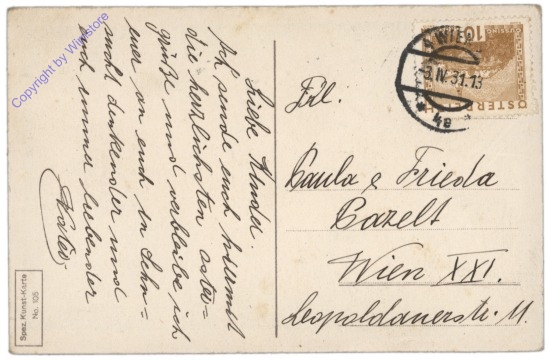 Liebe Kinder.
Ich sende euch hiermit
die herzlichsten Oster-
grüße und verbleibe ich
euer an euch in Sehn-
sucht denkender und
euch immer liebender
Vater
Frl.
Paula & Frieda
Pazelt
Wien XXI.
Leopoldauerstr. 11.
WIEN
3.IV.31.13
* 4e *
10
GÜSSING
ÖSTERREICH
Spez. Kunst-Karte
No. 105
Copyright by Winstore